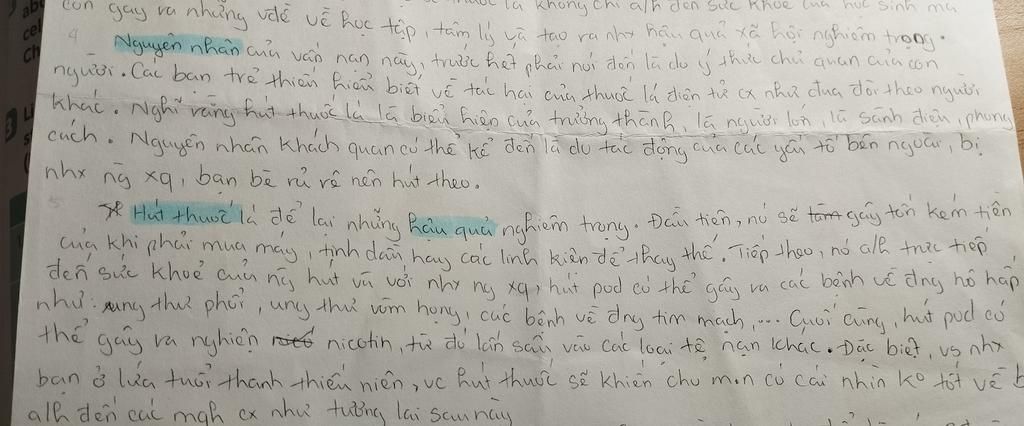 còn gây ra những vđề về học tập, tâm lý và tạo ra nhx hậu quả xã hội nghiêm trọng.
Nguyên nhân của vấn nạn này, trước hết phải nói đến là do ý thức chủ quan của con
người. Các bạn trẻ thiếu hiểu biết về tác hại của thuốc lá điện tử cx như đua đòi theo người
khác. Nghĩ rằng hút thuốc lá là biểu hiện của trưởng thành, là người lớn, là sành điệu, phong
cách. Nguyên nhân khách quan có thể kể đến là do tác động của các yếu tố bên ngoài, bị
nhx ng xq, bạn bè rủ rê nên hút theo.
* Hút thuốc lá để lại những hậu quả nghiêm trọng. Đầu tiên, nó sẽ gây tốn kém tiền
của khi phải mua máy, tinh dầu hay các linh kiện để thay thế. Tiếp theo, nó a/h trực tiếp
đến sức khoẻ của ng hút và với nhx ng xq, hút pod có thể gây ra các bệnh về đng hô hấp
như: ung thư phổi, ung thư vòm họng, các bệnh về đng tim mạch,... Cuối cùng, hút pod có
thể gây ra nghiện nicotin, từ đó lấn sâu vào các loại tệ nạn khác. Đặc biệt, vs nhx
bạn ở lứa tuổi thanh thiếu niên, vc hút thuốc sẽ khiến cho m.n có cái nhìn ko tốt về
a/h đến các mqh cx như tương lai sau này